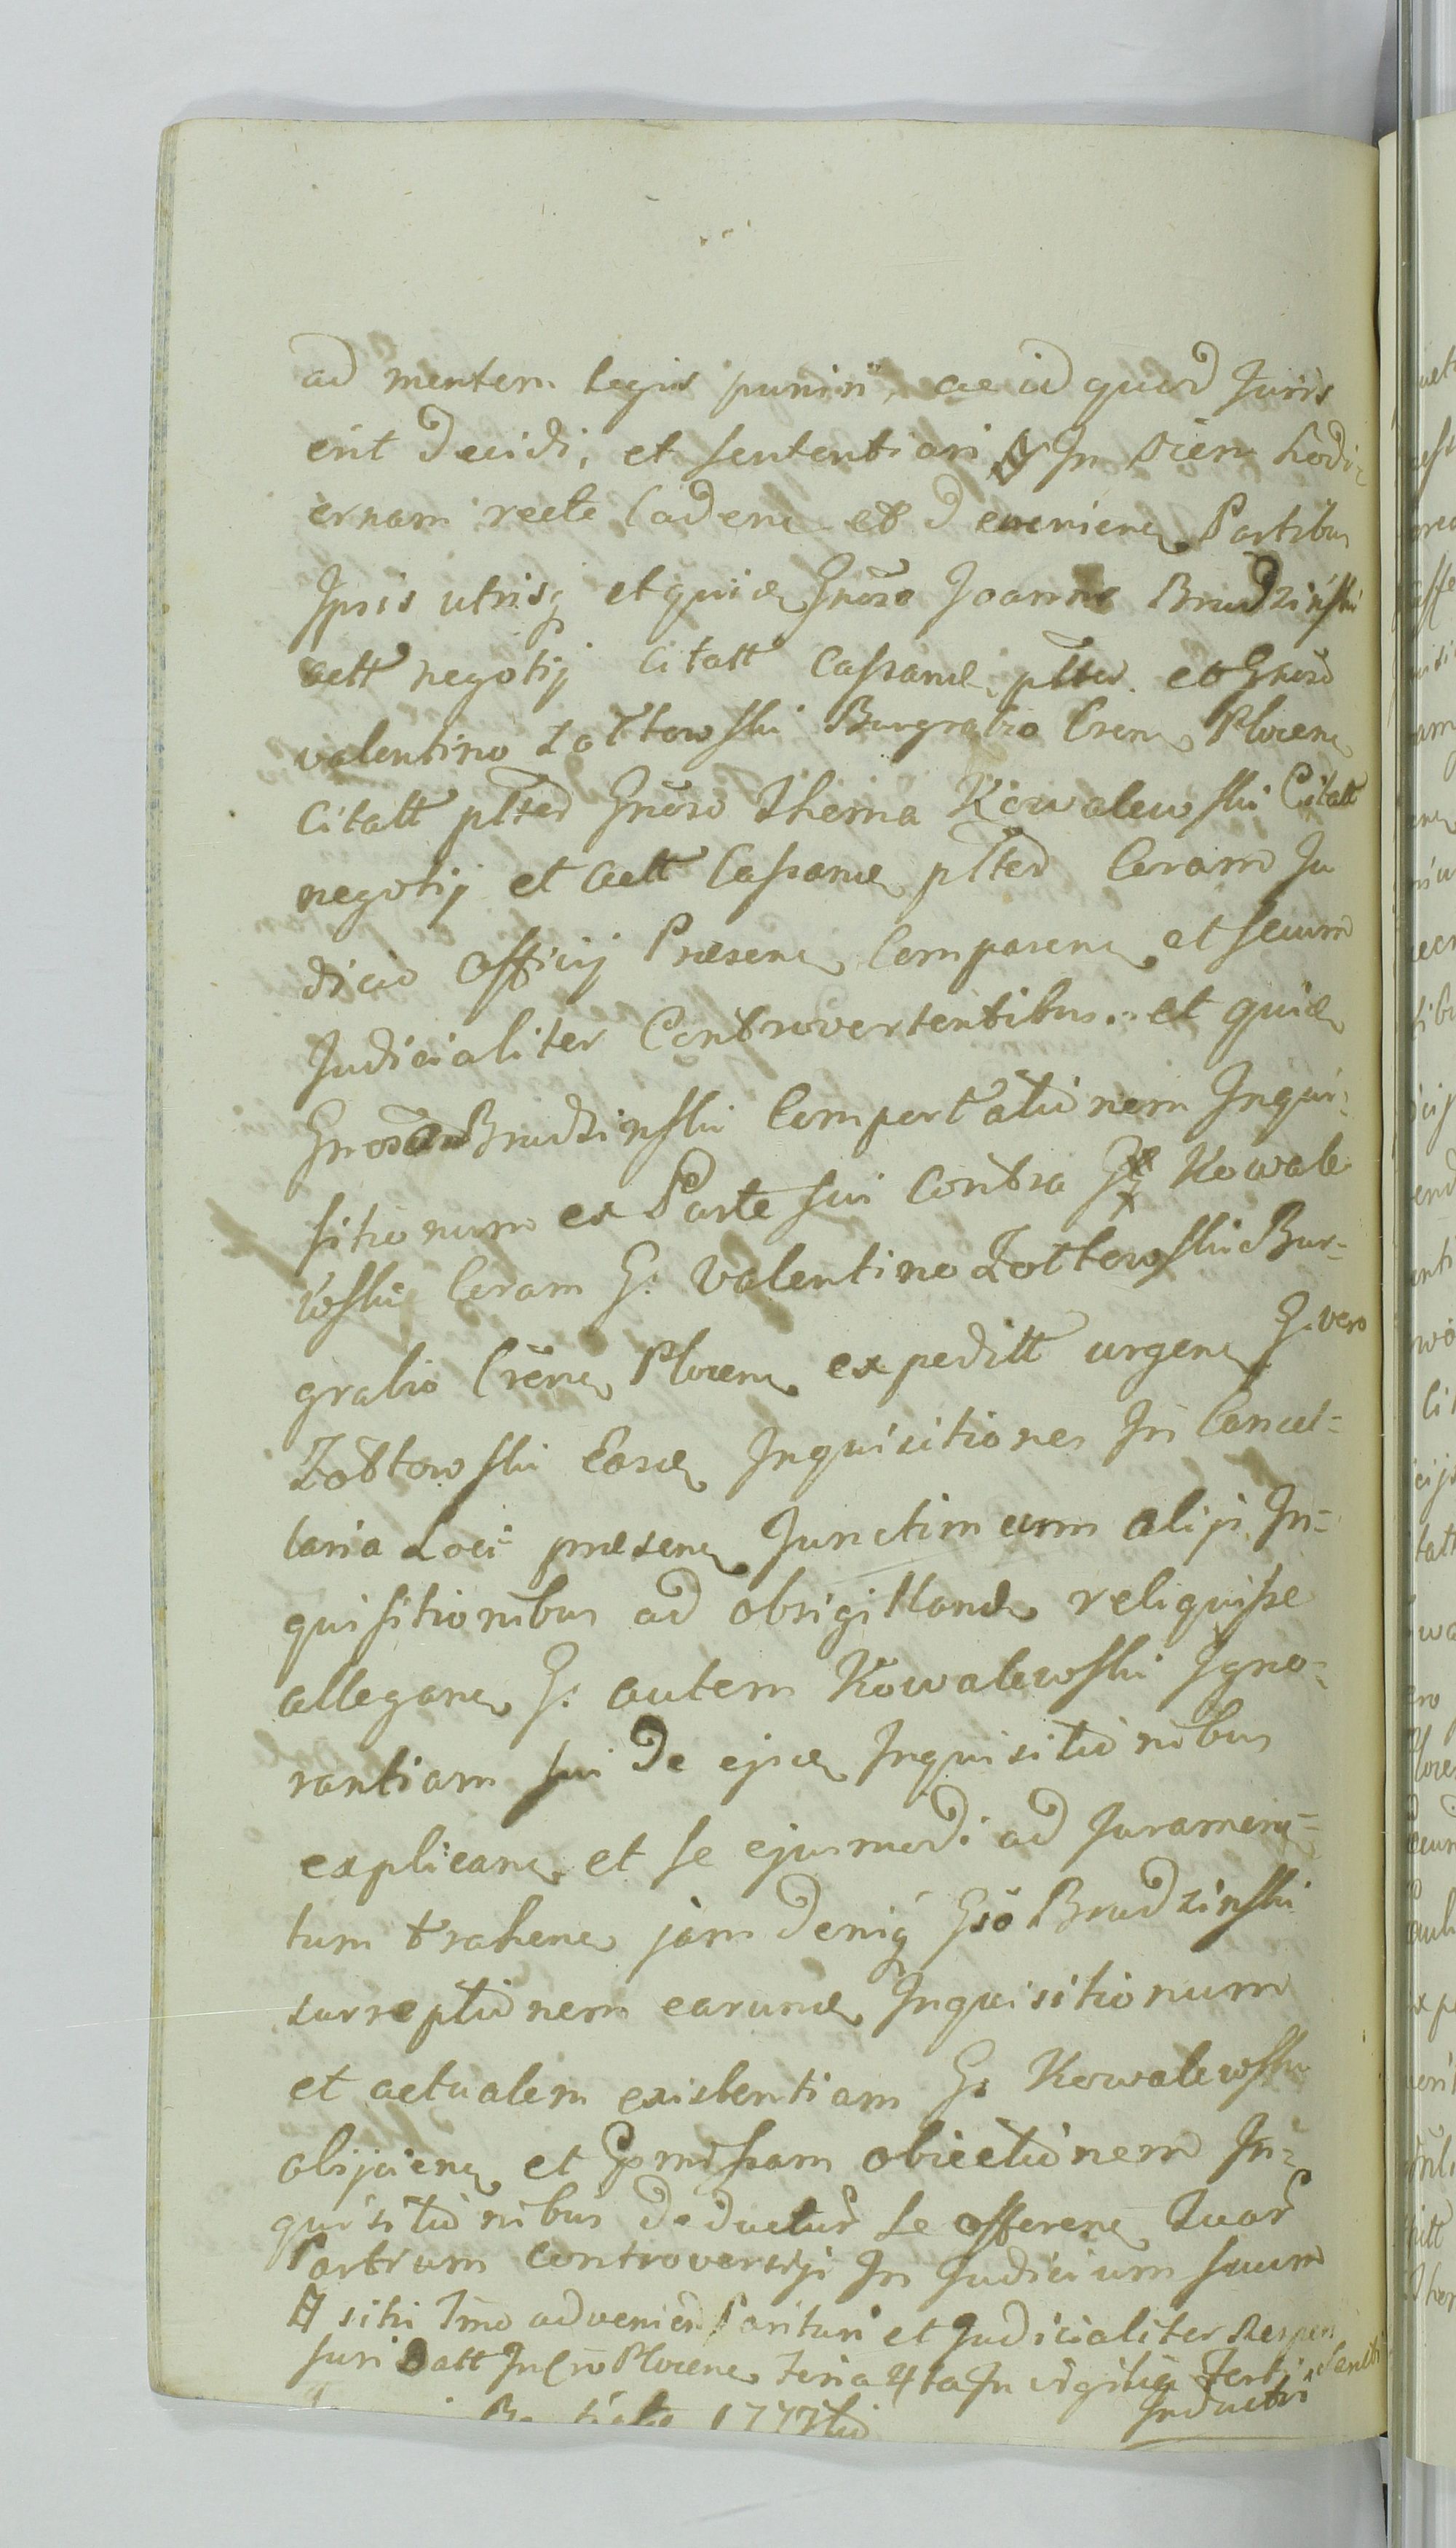 ad mentem legis puniri, ac id quod Juris
erit decidi, et sententiari In diem hodi-
ernam recte Caden et devenien Partibus
Ipsis utrisq et quid Gnoso Joanne Brudzinski
actt negotij citatt Cassand ptter et Gnoso
valentino Zołtowski Burgrabio Cren Plocen
Citatt pltter Gnoso Thoma Kowalewski Citatt
negotij et Actt Cassand pltter Coram Ju
dicio Officij Præsen Comparen et secum
Judicialiter Controvertentibus et quid
Gnoso Brudzinski Comportationem Inqui-
sitionum ex Parte sui contra G Kowale
wski Coram G: Valentino Zołtowski Bur-
grabio Cren Plocen expeditt urgen G: vero
Zołtowski Easd Inquisitiones In Cancel-
laria Loci præsen Junctim cum alijs In-
quisitionibus ad obsigilland reliquisse
allegan G: autem Kowalewski Igno-
rantiam sui de ejsd Inquisitionibus
explican et se ejusmodi ad Juramen-
tum trahen jam deniq Gso Brudzinski
surreptionem earund Inquisitionum
et actualem existentiam G: Kowalewski
obijcien et præmissam obiectionem In-
quisitionibus deductur se offeren Quar
Partium controversijs In Judicium suum
siti Tmo advenien Parituri et Judicialiter Respon
suri Datt In Cro Plocen Feria 4ta In vigilia Festi Sancti
1777mo Inductis